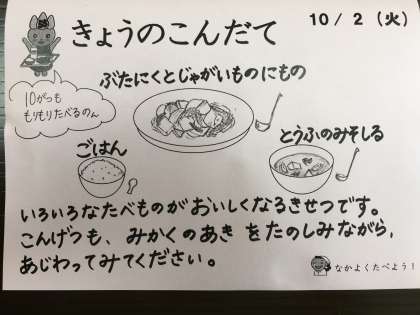 きょうのこんだて
10/2（火）
ぶたにくとじゃがいものにもの
10がつも
もりもりたべるのん
ごはん
とうふのみそしる
いろいろなたべものがおいしくなるきせつです。
こんげつも、みかくのあき をたのしみながら、
あじわってみてください。
なかよくたべよう！